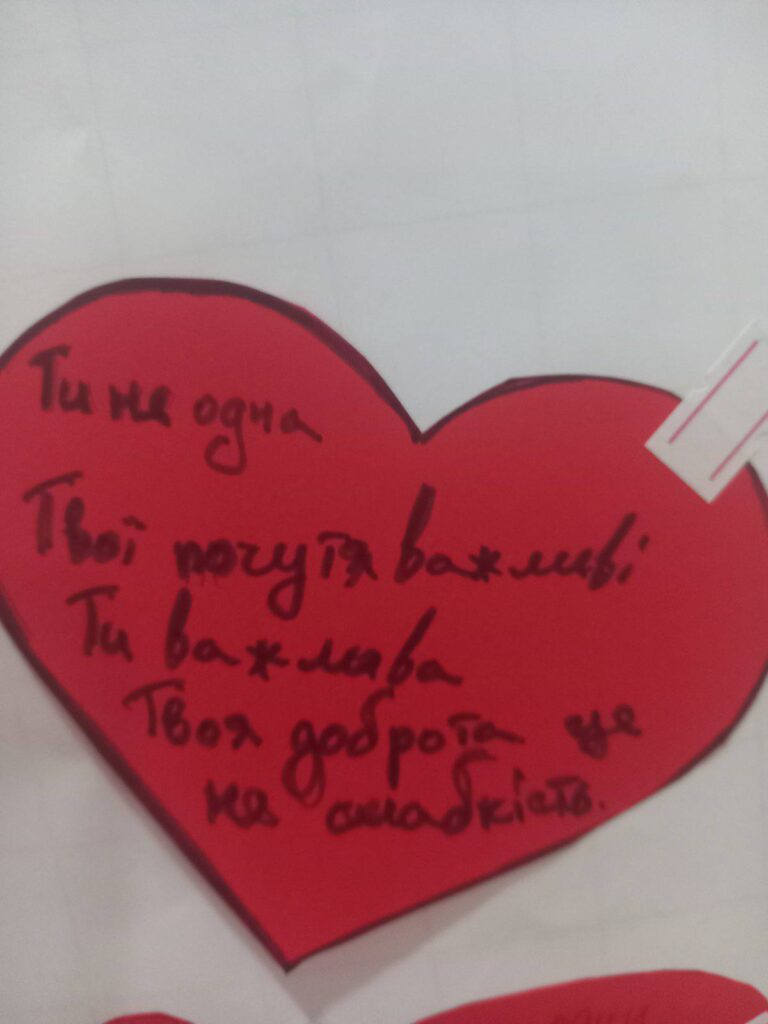 Ти не одна
Твої почутя важливі
Ти важлива
Твоя доброта це
не слабкість.